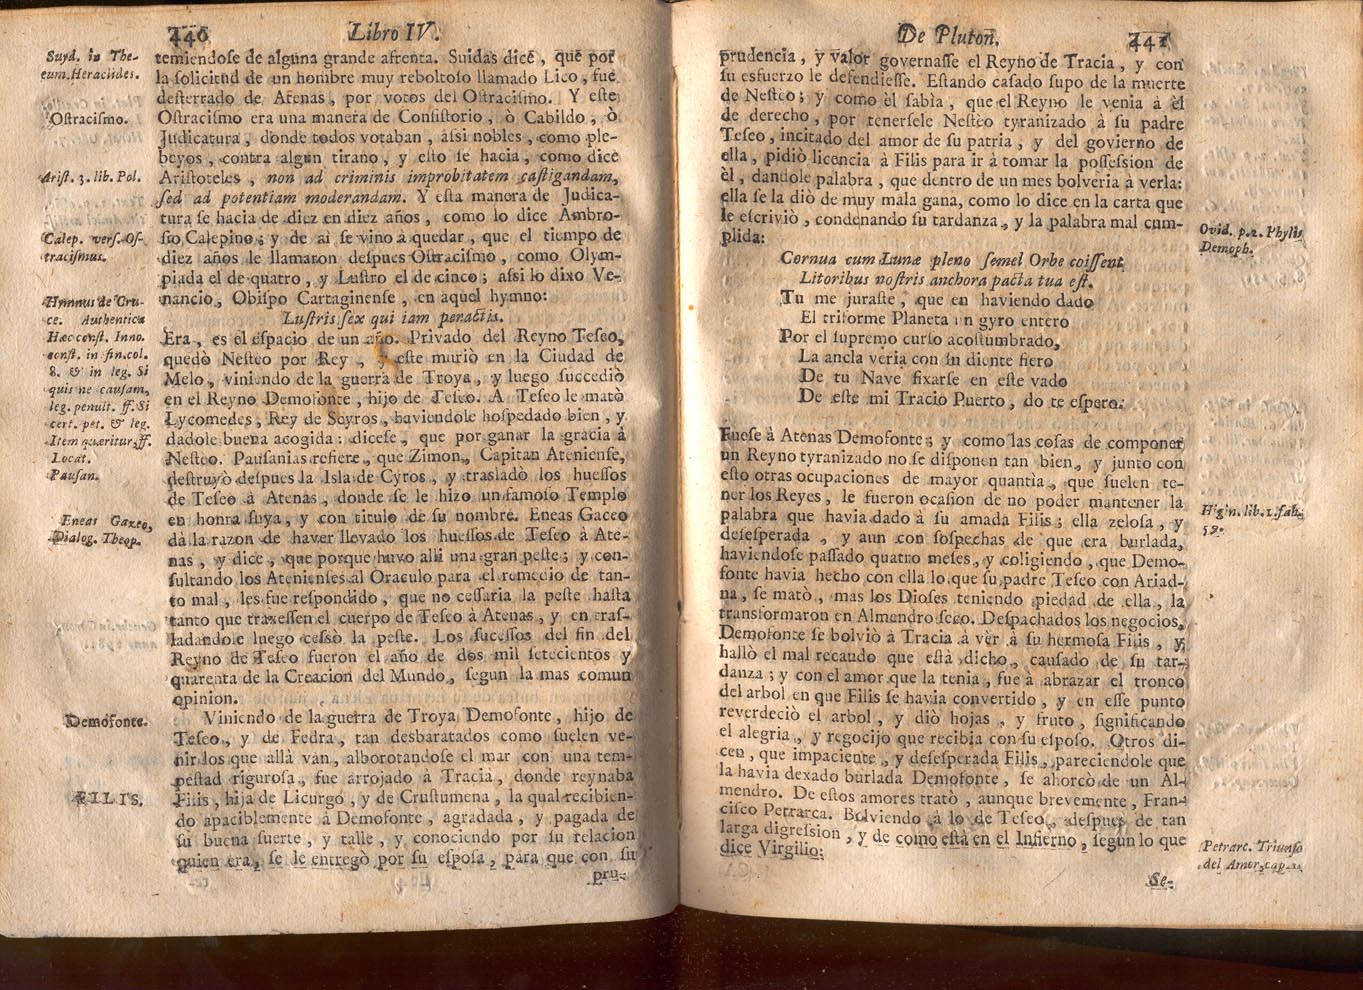 440 Libro IV.
Suyd. in The-
eum. Heraclides.
Ostracismo.
Arist. 3. lib. Pol.
Calep. vers. Os-
tracismus.
Hymnus de Cru-
ce. Authentica
Hæc const. Inno.
const. in fin. col.
8. & in leg. Si
quis ne causam,
leg. penult. ff. Si
cert. pet. & leg.
Item quæritur, ff.
Locat.
Pausan.
Eneas Gazeo,
Dialog. Theop.
Demofonte.
FILIS.
temiendose de alguna grande afrenta. Suidas dice, que por
la solicitud de un hombre muy reboltoso llamado Lico, fue
desterrado de Atenas, por votos del Ostracismo. Y este
Ostracismo era una manera de Consistorio, ò Cabildo, ò
Judicatura, donde todos votaban, assi nobles, como ple-
beyos, contra algun tirano, y esto se hacia, como dice
Aristoteles, non ad criminis improbitatem castigandam,
sed ad potentiam moderandam. Y esta manera de Judica-
tura se hacia de diez en diez años, como lo dice Ambro-
sio Calepino; y de ai se vino à quedar, que el tiempo de
diez años le llamaron despues Ostracismo, como Olym-
piada el de quatro, y Lustro el de cinco; assi lo dixo Ve-
nancio, Obispo Cartaginense, en aquel hymno:
Lustris sex qui iam peractis.
Era, es el espacio de un año. Privado del Reyno Teseo,
quedò Nesteo por Rey, y este muriò en la Ciudad de
Melo, viniendo de la guerra de Troya, y luego succediò
en el Reyno Demofonte, hijo de Teseo. A Teseo le matò
Lycomedes, Rey de Scyros, haviendole hospedado bien, y
dadole buena acogida: dicese, que por ganar la gracia à
Nesteo. Pausanias refiere, que Zimon, Capitan Ateniense,
destruyò despues la Isla de Cyros, y trasladò los huessos
de Teseo à Atenas, donde se le hizo un famoso Templo
en honra suya, y con titulo de su nombre. Eneas Gaceo
dà la razon de haver llevado los huessos de Teseo à Ate-
nas, y dice, que porque huvo alli una gran peste; y con-
sultando los Atenienses al Oraculo para el remedio de tan-
to mal, les fue respondido, que no cessaria la peste hasta
tanto que traxessen el cuerpo de Teseo à Atenas, y en tras-
ladandole luego cessò la peste. Los sucessos del fin del
Reyno de Teseo fueron el año de dos mil setecientos y
quarenta de la Creacion del Mundo, segun la mas comun
opinion.
Viniendo de la guerra de Troya Demofonte, hijo de
Teseo, y de Fedra, tan desbaratados como suelen ve-
nir los que allà van, alborotandose el mar con una tem-
pestad rigurosa, fue arrojado à Tracia, donde reynaba
Filis, hija de Licurgo, y de Crustumena, la qual recibien-
do apaciblemente à Demofonte, agradada, y pagada de
su buena suerte, y talle, y conociendo por su relacion
quien era, se le entregò por su esposa, para que con su
pru-
De Pluton. 441
prudencia, y valor governasse el Reyno de Tracia, y con
su esfuerzo le defendiesse. Estando casado supo de la muerte
de Nesteo; y como èl sabìa, que el Reyno le venia à èl
de derecho, por tenersele Nesteo tyranizado à su padre
Teseo, incitado del amor de su patria, y del govierno de
ella, pidiò licencia à Filis para ir à tomar la possession de
èl, dandole palabra, que dentro de un mes bolveria à verla:
ella se la diò de muy mala gana, como lo dice en la carta que
le escriviò, condenando su tardanza, y la palabra mal cum-
plida:
Cornua cum Lunæ pleno semel Orbe coissent,
Litoribus nostris anchora pacta tua est.
Tu me juraste, que en haviendo dado
El triforme Planeta un gyro entero
Por el supremo curso acostumbrado,
La ancla veria con su diente fiero
De tu Nave fixarse en este vado
De este mi Tracio Puerto, do te espero.
Fuese à Atenas Demofonte; y como las cosas de componer
un Reyno tyranizado no se disponen tan bien, y junto con
esto otras ocupaciones de mayor quantìa, que suelen te-
ner los Reyes, le fueron ocasion de no poder mantener la
palabra que havia dado à su amada Filis; ella zelosa, y
desesperada, y aun con sospechas de que era burlada,
haviendose passado quatro meses, y coligiendo, que Demo-
fonte havia hecho con ella lo que su padre Teseo con Ariad-
na, se matò, mas los Dioses teniendo piedad de ella, la
transformaron en Almendro seco. Despachados los negocios,
Demofonte se bolviò à Tracia à vèr à su hermosa Filis, y
hallò el mal recaudo que està dicho, causado de su tar-
danza; y con el amor que la tenia, fue à abrazar el tronco
del arbol en que Filis se havia convertido, y en esse punto
reverdeciò el arbol, y diò hojas, y fruto, significando
el alegria, y regocijo que recibia con su esposo. Otros di-
cen, que impaciente, y desesperada Filis, pareciendole que
la havia dexado burlada Demofonte, se ahorcò de un Al-
mendro. De estos amores tratò, aunque brevemente, Fran-
cisco Petrarca. Bolviendo à lo de Teseo, despues de tan
larga digression, y de como està en el Infierno, segun lo que
dice Virgilio:
Se-
Ovid. p. 2. Phylis
Demoph.
Higin. lib. 1. fab.
59.
Petrarc. Triunfo
del Amor, cap.